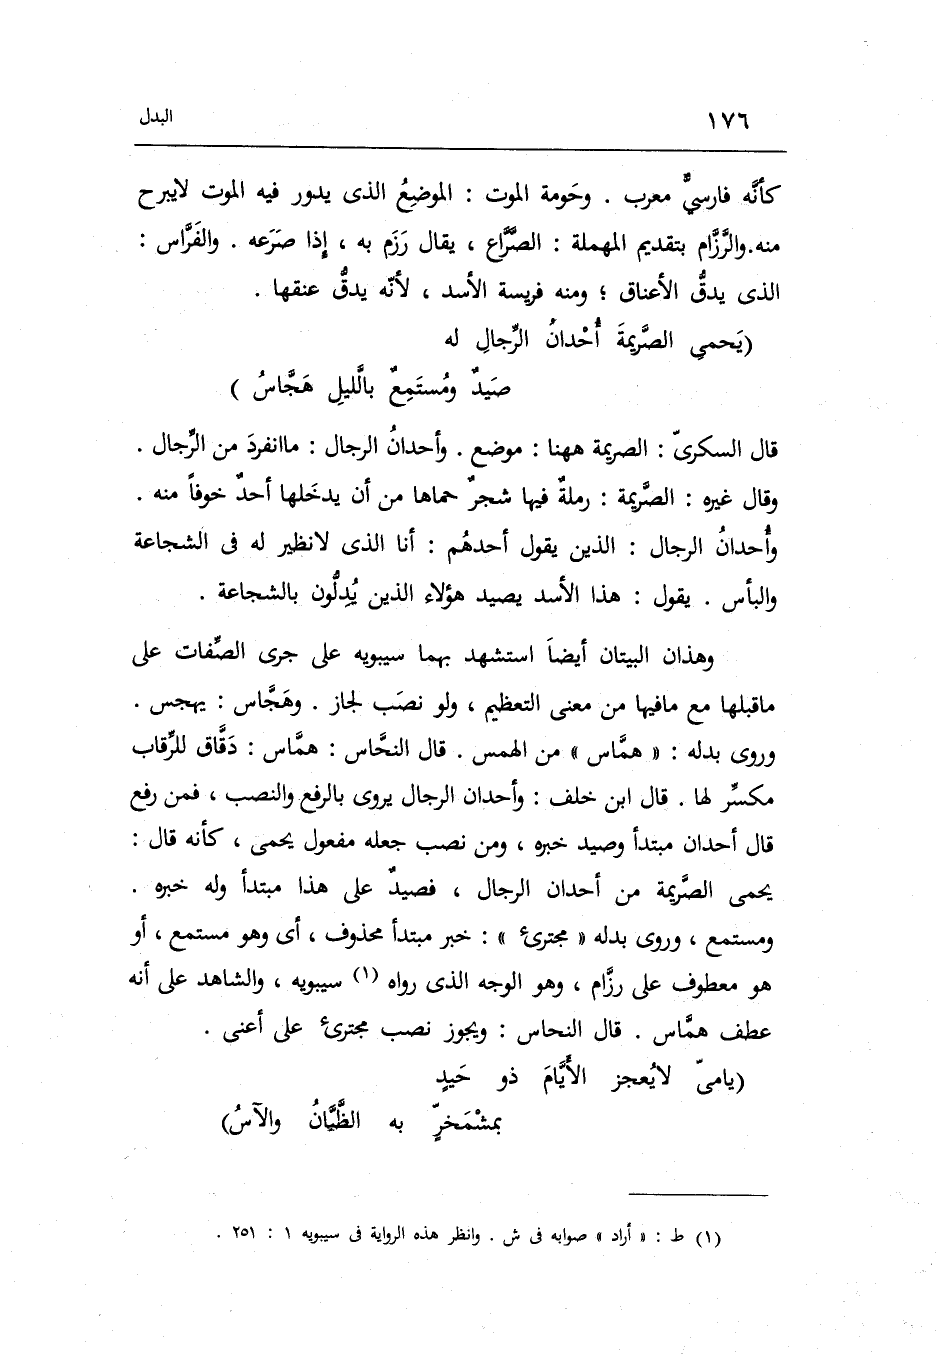 ١٧٦ البدل
كأنَّه فارسيٌّ معرب . وحَومة الموت : الموضِعُ الذى يدور فيه الموت لايبرح
منه.والرَّزَّام بتقديم المهملة : الصَّرَّاع ، يقال رَزَم به ، إذا صَرَعه . والفَرَّاس :
الذى يدقُّ الأعناق ؛ ومنه فريسة الأسد ، لأنّه يدقُّ عنقها .
(يَحمىِ الصَّرِيمَةَ أُحْدانُ الرِّجالِ له
صَيدٌ ومُستَمِعٌ بالَّليلِ هَجَّاسُ )
قال السكرىّ : الصريمة ههنا : موضع . وأحدانُ الرجال : ماانفردَ من الرِّجال .
وقال غيره : الصَّرِيمة : رملةٌ فيها شجرٌ حماها من أن يدخَلها أحدٌ خوفاً منه .
وأُحدانُ الرجال : الذين يقول أحدهُم : أنا الذى لانظير له فى الشجاعة
والبأس . يقول : هذا الأسد يصيد هؤلاء الذين يُدِلُّون بالشجاعة .
وهذان البيتان أيضاً استشهد بهما سيبويه على جرى الصِّفات على
ماقبلها مع مافيها من معنى التعظيم ، ولو نصَب لجاز . وهَجَّاس : يهجس .
وروى بدله : « همَّاس » من الهمس . قال النحَّاس : همَّاس : دَقَّاق للرِّقاب
مكسِّر لها . قال ابن خلف : وأحدان الرجال يروى بالرفع والنصب ، فمن رفع
قال أحدان مبتدأ وصيد خبره ، ومن نصب جعله مفعول يحمى ، كأنه قال :
يحمى الصَّرِيمة من أحدان الرجال ، فصيدٌ على هذا مبتدأ وله خبره .
ومستمع ، وروى بدله « مجترئ » : خبر مبتدأ محذوف ، أى وهو مستمع ، أو
هو معطوف على رزَّام ، وهو الوجه الذى رواه (١) سيبويه ، والشاهد على أنه
عطف همَّاس . قال النحاس : ويجوز نصب مجترئ على أعنى .
(يامىّ لايُعجز الأَيَّامَ ذو حَيدٍ
بمشْمَخرٍّ به الظَّيَّانُ والآسُ)
(١) ط : « أراد » صوابه فى ش . وانظر هذه الرواية فى سيبويه ١ : ٢٥١ .